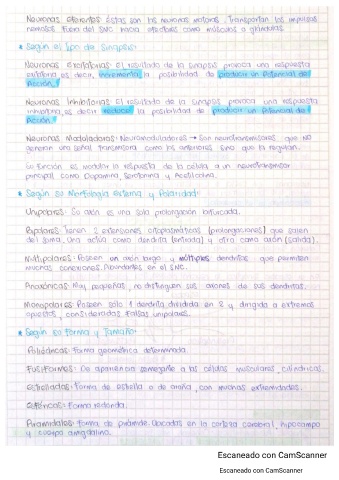 Neuronas eferentes: Estas son las neuronas motoras. Transportan los impulsos
nerviosos fuera del SNC hacia efectores como músculos o glándulas.
* Según el tipo de Sinapsis:
Neuronas Excitatorias: El resultado de la sinapsis provoca una respuesta
exitatoria es decir, incrementa la posibilidad de producir un Potencial de
Acción.
Neuronas Inhibitorias: El resultado de la sinapsis provoca una respuesta
inhibitoria, es decir reduce la posibilidad de producir un Potencial de
Acción.
Neuronas Moduladoras: Neuromoduladores → Son neurotransmisores que NO
generan una señal transmisora como los anteriores sino que la regulan.
Su función es modular la respuesta de la célula a un neurotransmisor
principal como Dopamina, Serotonina y Acetilcolina.
* Según su Morfología externa y Polaridad:
Unipolares: Su axón es una sola prolongación bifurcada.
Bipolares: Tienen 2 extensiones citoplasmáticas (prolongaciones) que salen
del soma. Una actúa como dendrita (entrada) y otra como axón (salida).
Multipolares: Poseen un axón largo y múltiples dendritas que permiten
muchas conexiones. Abundantes en el SNC.
Anaxónicas: Muy pequeñas, no distinguen sus axones de las dendritas.
Monopolares: Poseen sólo 1 dendrita dividida en 2 y dirigida a extremos
opuestos, consideradas Falsas unipolares.
* Según su Forma y Tamaño:
Poliédricas: Forma geométrica determinada.
Fusiformes: De apariencia semejante a las células musculares, cilíndricas.
Estrelladas: Forma de estrella o de araña, con muchas extremidades.
Esféricas: Forma redonda.
Piramidales: Forma de pirámide. Ubicadas en la corteza cerebral, hipocampo
y cuerpo amigdalino.
Escaneado con CamScanner
Escaneado con CamScanner